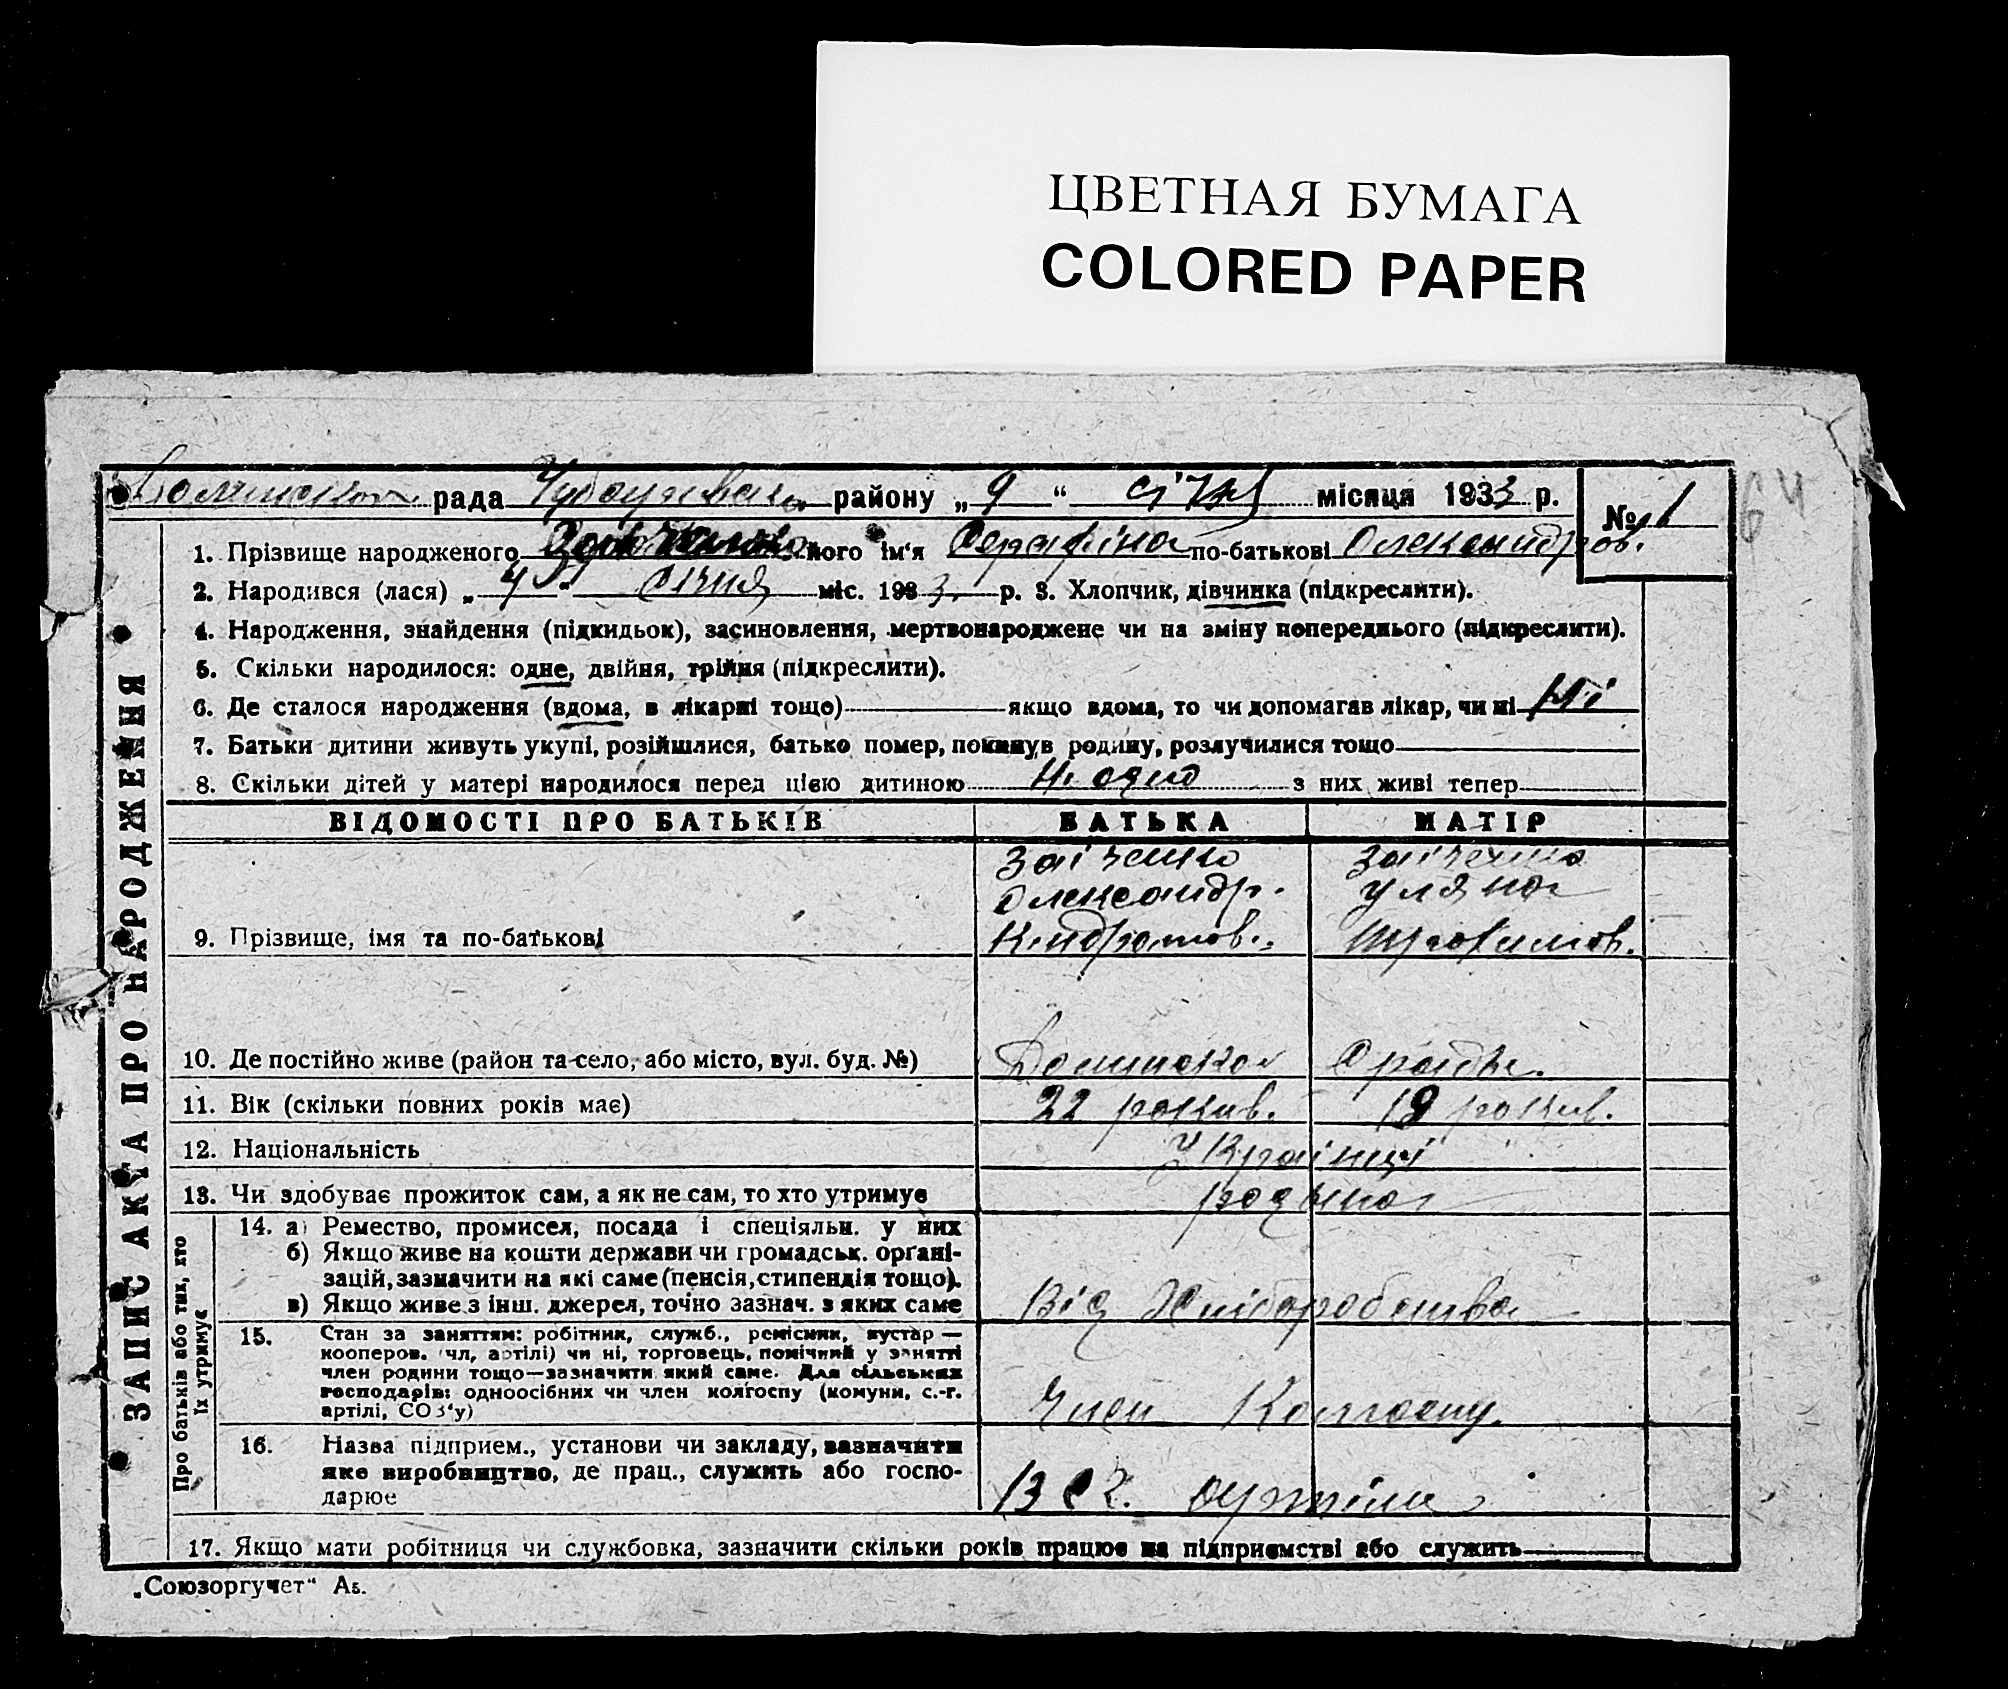 ЦВЕТНАЯ БУМАГА
COLORED PAPER
64
Долинська рада Чубарівська району „ 9 “ січня місяця 1933 р.
№ 1
1. Прізвище народженого його ім‘я Серафіна по-батькові Олександров.
2. Народився (лася) „ 4 “ січня міс. 1933. р. 3. Хлопчик, дівчинка (підкреслити).
4. Народження, знайдення (підкидьок), засиновлення, мертвонароджене чи на зміну попереднього (підкреслити).
5. Скільки народилося: одне, двійня, трійня (підкреслити).
6. Де сталося народження (вдома, в лікарні тощо) якщо вдома, то чи допомагав лікар, чи ні Ні
7. Батьки дитини живуть укупі, розійшлися, батько помер, покинув родину, розлучилися тощо
8. Скільки дітей у матері народилося перед цією дитиною з них живі тепер
ВІДОМОСТІ ПРО БАТЬКІВ БАТЬКА МАТІР
Заіченко Заіченко
Олександр. Уляна
9. Прізвище, імя та по-батькові Кіндратов. Трофимов.
10. Де постійно живе (район та село, або місто, вул. буд. №) Долинська
11. Вік (скільки повних років має) 22 років. 19 років.
12. Національність Українці
13. Чи здобуває прожиток сам, а як не сам, то хто утримує родина
14. а) Ремество, промисел, посада і спеціяльн. у них
б) Якщо живе на кошти держави чи громадськ. органі-
зацій, зазначити на які саме (пенсія, стипендія тощо).
в) Якщо живе з інш. джерел, точно зазнач. з яких саме Від Хліборобства
15. Стан за заняттям: робітник, служб., ремісник, кустар —
кооперов. (чл. артілі) чи ні, торговець, помічний у занятті
член родини тощо—зазначити який саме. Для сільських
господарів: одноосібних чи член колгоспу (комуни, с.-г.
артілі, СОЗ‘у) Член Колгоспу.
16. Назва підприєм., установи чи закладу, зазначити
яке виробництво, де прац., служить або госпо-
дарює В с г. артіли
17. Якщо мати робітниця чи службовка, зазначити скільки років працює на підприємстві або служить
ЗАПИС АКТА ПРО НАРОДЖЕННЯ
Про батьків або тих, хто
їх утримує
„Союзоргучет“ Аб.